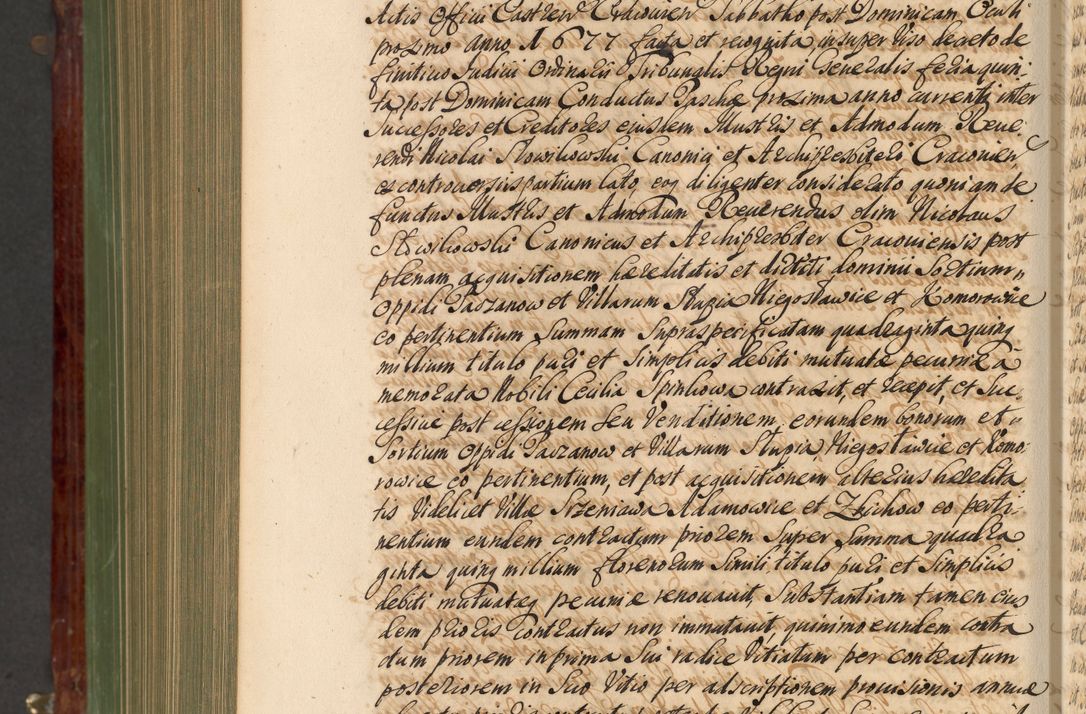 Actis Officii Castren Cracovien Sabbatho post Dominicam Oculi
proximo anno 1677 facta et recognita insuper viso decreto de
finitivo Judicii Ordinarii Tribunalis Regni Generalis feria quin
ta post Dominicam Conductus Paschæ proxima anno currenti inter
Successores et Creditores eiusdem Illustris et Admodum Reve
rendi Nicolai Słowikowski Canonici et Archipresbiteri Cracovien
ex controversiis partium lato, eoq diligenter considerato quoniam de
functus Illustris et Admodum Reverendus olim Nicolaus
Słowikowski Canonicus et Archipresbiter Cracoviensis post
plenam acquisitionem hæreditatis et dictiti dominii Sortium
Oppidi Paczanow et Villarum Słupia Niegosławice et Komorowice
eo pertinentium Summam Suprasperificatam quadraginta quinq
millium titulo puri et Simplicis debiti mutuatæ pecuniæ à
memorata Nobili Cecilia Spinkowa contraxit, et recepit, et Suc
cessive post cessionem Seu Venditionem, eorundem bonorum et
Sortium Oppidi Paczanow et Villarum Słupia, Niegosławice et Komo
rowice eo pertinentium, et post acquisitionem alterius heredita
tis Videlicet Villæ Srzeniawa Adamowice et Zbichow eo perti
nentium eundem contractum priorem Super Summa quadra
ginta quinq millium florenorum Simili titulo puri et Simplicis
debiti mutuatæq pecuniæ renovavit, Substantiam tamen eius
dem prioris contractus non immutavit, quinimo eundem contra
ctum priorem in prima Sui radice Vitiatam per contractum
posteriorem in Suo Vitio per adscriptionem provisionis annuæ